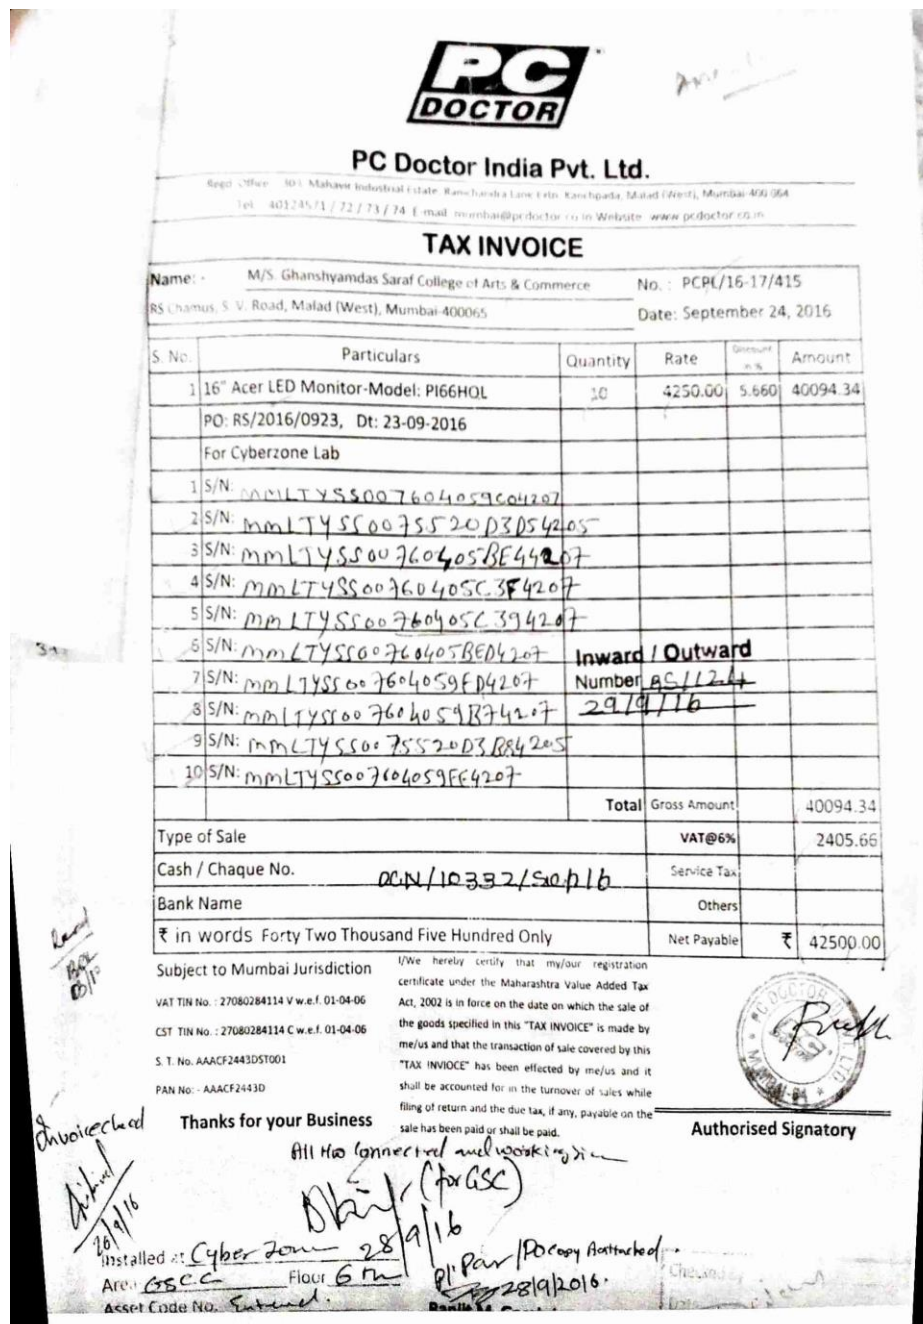 PC
DOCTOR
PC Doctor India Pvt. Ltd.
Regd. Office 301 Mahavir Industrial Estate, Ramchandra Lane Extn. Kanchpada, Malad (West), Mumbai-400 064
Tel. 40124571 / 72 / 73 / 74 E-mail mumbai@pcdoctor.co.in Website www.pcdoctor.co.in
TAX INVOICE
Name: - M/S. Ghanshyamdas Saraf College of Arts & Commerce No. : PCPL/16-17/415
RS Chamus, S. V. Road, Malad (West), Mumbai-400065 Date: September 24, 2016
S. No. Particulars Quantity Rate Discount in % Amount
1 16" Acer LED Monitor-Model: PI66HQL 10 4250.00 5.660 40094.34
PO: RS/2016/0923, Dt: 23-09-2016
For Cyberzone Lab
1 S/N: MMLTYSS007604059C04207
2 S/N: MMLTYSS0075520D3D54205
3 S/N: MMLTYSS00760405BE44207
4 S/N: MMLTYSS00760405C3F4207
5 S/N: MMLTYSS00760405C394207
6 S/N: MMLTYSS00760405BED4207
Inward / Outward
7 S/N: MMLTYSS007604059FD4207 Number
8 S/N: MMLTYSS007604059B74207 29/9/16
9 S/N: MMLTYSS0075520D3B84205
10 S/N: MMLTYSS007604059FE4207
Total Gross Amount 40094.34
Type of Sale VAT@6% 2405.66
Cash / Chaque No. Service Tax
Bank Name Others
₹ in words Forty Two Thousand Five Hundred Only Net Payable ₹ 42500.00
Subject to Mumbai Jurisdiction
VAT TIN No. : 27080284114 V w.e.f. 01-04-06
CST TIN No. : 27080284114 C w.e.f. 01-04-06
S. T. No. AAACF2443DST001
PAN No: - AAACF2443D
Thanks for your Business
I/We hereby certify that my/our registration
certificate under the Maharashtra Value Added Tax
Act, 2002 is in force on the date on which the sale of
the goods specified in this "TAX INVOICE" is made by
me/us and that the transaction of sale covered by this
"TAX INVIOCE" has been effected by me/us and it
shall be accounted for in the turnover of sales while
filing of return and the due tax, if any, payable on the
sale has been paid or shall be paid.
Authorised Signatory
All connected and working
(for GSC)
28/9/16
26/9/16
Installed at Cyber Zone
Area GSCC Floor 6th
PO copy Aattached
28/9/2016.
Asset Code No.